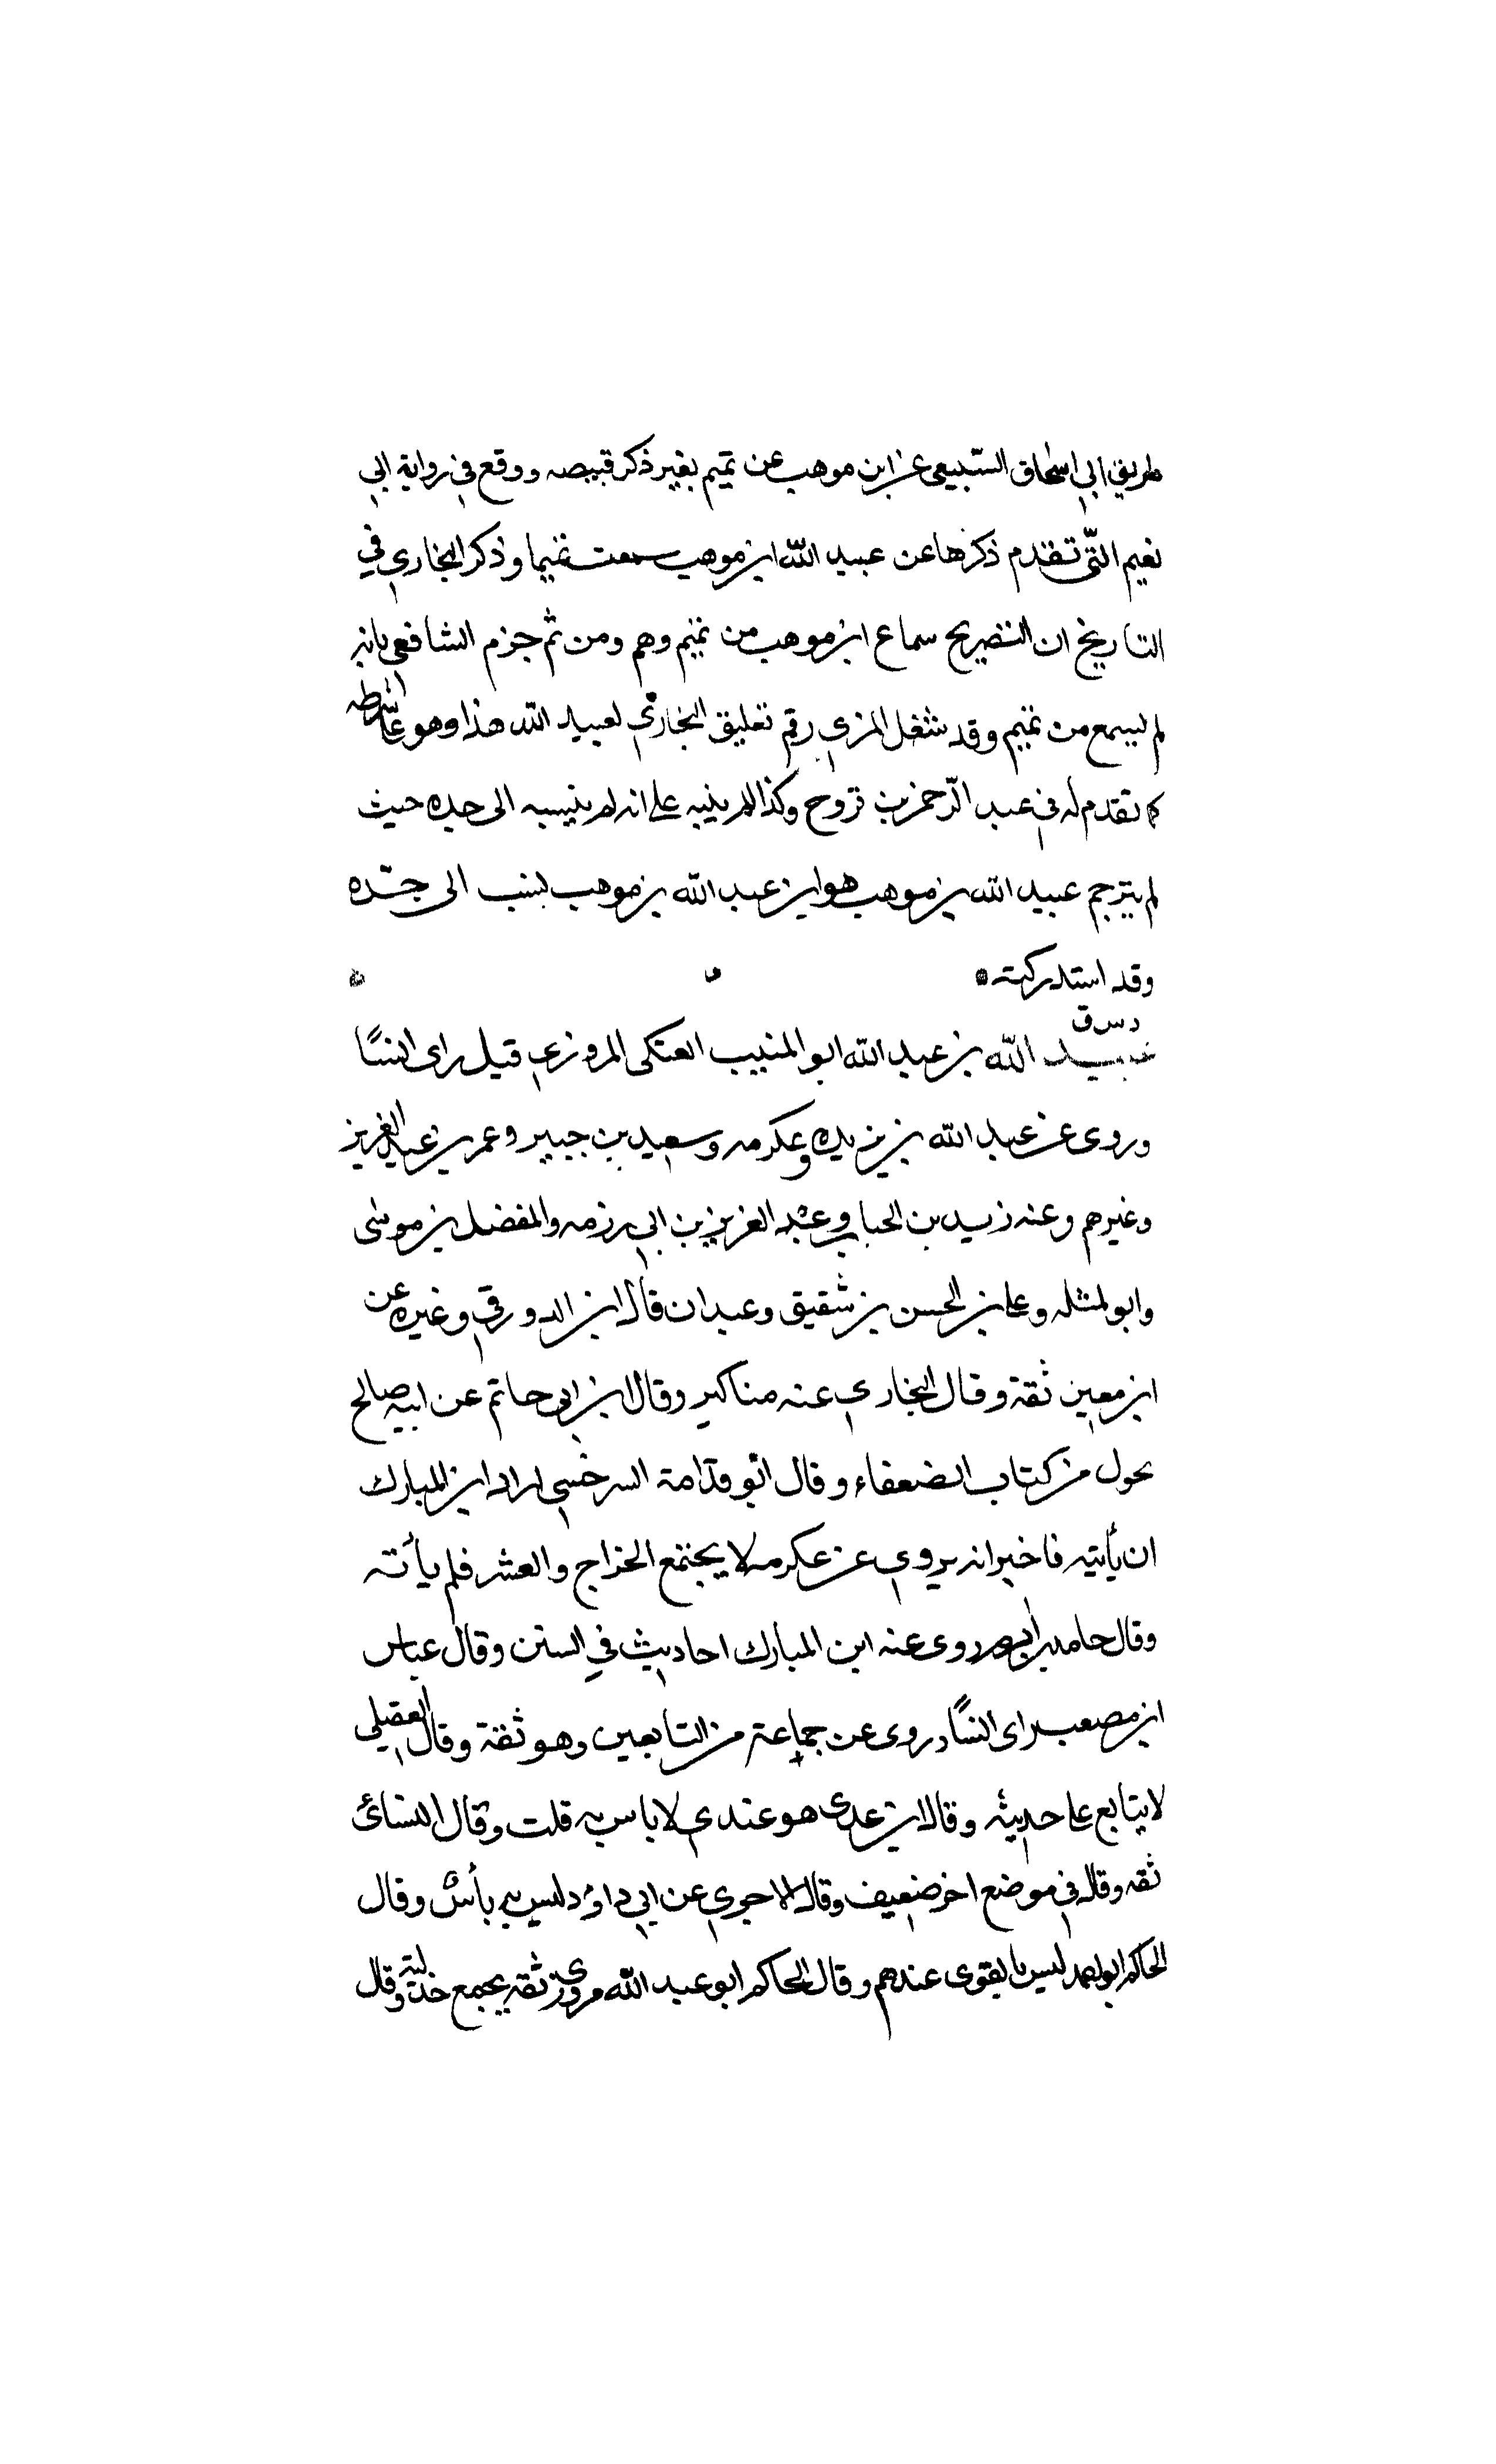 طريق ابي اسحاق السّبيعى عن ابن موهب عن تميم بغير ذكر قبيصه ووقع في رواية ابي
نعيم التّى تقدم ذكرها عن عبيد الله ابن موهب سمعت تميما وذكر البخاري في
التاريخ ان التصريح سماع ابن موهب من تميم وهم ومن ثم جزم الشافعي بانه
لم يسمع من تميم وقد شغل المزي رقم تعليق البخاري لعبيد الله هذا وهو على شرطه
كما تقدم له في عبد الرّحمن بن فروح وكذا لم ينبه على انه لم ينسبه الى جده حيث
لم يترجم عبيد الله بن موهب هو ابن عبد الله بن موهب ينسب الى جدّه
وقد استدركته
د س ق
عبيد الله بن عبد الله ابو المنيب العتكى المروزي قيل راى انسًا
وروى عن عبد الله بن بريده وعكرمه وسعيد بن جبير وعمر بن عبد العزيز
وغيرهم وعنه زيد بن الحباب وعبد العزيز بن ابي رزمه والمفضل بن موسى
وابو تميله وعلي بن الحسن بن شقيق وعبدان قال ابن الدورقي وغيره عن
ابن معين ثقة وقال البخاري عنه مناكير وقال ابن ابي حاتم عن ابيه صالح
يحول من كتاب الضعفاء وقال ابو قدامة السرخسي اراد ابن المبارك
ان يأتيه فاخبر انه يروي عن عكرمه لا يجتمع الخراج والعشر فلم يأته
وقال حامد روى عنه ابن المبارك احاديث في السنن وقال عباس
ابن مصعب راى انسًا وروى عن جماعة من التابعين وهو ثقة وقال العقيلي
لا يتابع على حديثه وقال ابن عدى هو عندي لا باس به قلت وقال النسائ
ثقه وقال في موضع اخر ضعيف وقال الاجري عن ابي داود ليس به بأس وقال
الحاكم ابو احمد ليس بالقوى عندهم وقال الحاكم ابو عبد الله مروزي ثقه يجمع حديثه وقال